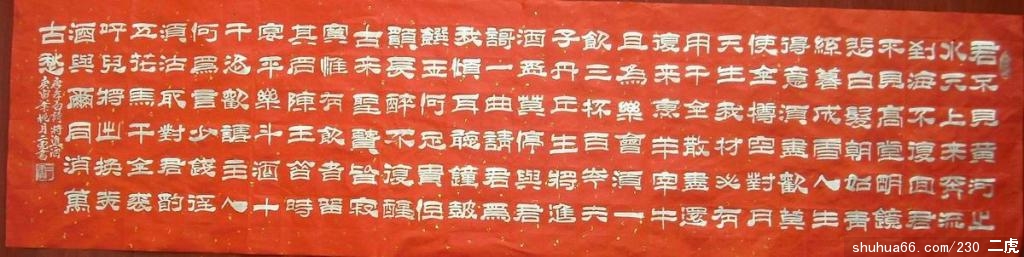 君不見黃河之
水天上來奔流
到海不復回君
不見高堂明鏡
悲白髮朝如青
絲暮成雪人生
得意須盡歡莫
使金樽空對月
天生我材必有
用千金散盡還
復來烹羊宰牛
且為樂會須一
飲三杯百岑夫
子丹丘生將進
酒盃莫停與君
謌一曲請君為
我傾耳聽鐘鼓
饌玉何足貴但
願長醉不復醒
古來聖賢皆寂
寞惟有飲者留
其名陳王昔時
宴平樂斗酒十
千恣歡謔主人
何為言少錢徑
須沽取對君酌
五花馬千金裘
呼兒將出換美
酒與爾同消萬
古愁
唐李白詩將進酒
庚寅年桃月二虎書
shuhua66.com/230 二虎